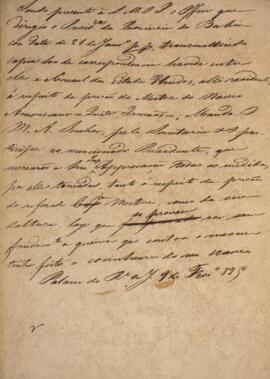 Sendo presente a S. M. I. o Officio que
dirigio o Presid.e da Provincia da Bahia
em data de 21 de Jan.ro pp. transmettindo
copias da correspondencia havida entre
elle e o Consul dos Estados Unidos, alli residente
á respeito da prisão do Mestre do Navio
Americano Manda O
M. A. Senhor, pela Secretaria
ao mencionado Presidente, que
mereceo a Approvação todas as medidas
por elle tomadas, tanto á respeito da prisão
do referido Mestre, como da sua
soltura logo que se provou ser sem
fundam.to a queixa que contra o mesmo
tinha feito o cosinheiro do seu navio
Palacio do R.o de J. 9 de Fev.ro 825